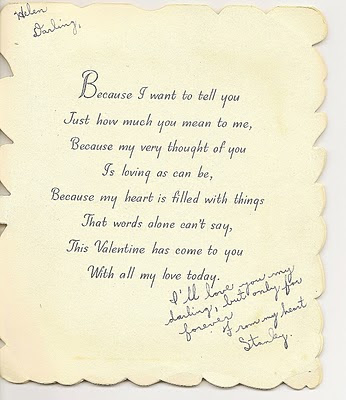 Helen
Darling,
Because I want to tell you
Just how much you mean to me,
Because my very thought of you
Is loving as can be,
Because my heart is filled with things
That words alone can't say,
This Valentine has come to you
With all my love today.
I'll love you my
darling, but only for
forever
From my heart
Stanley.